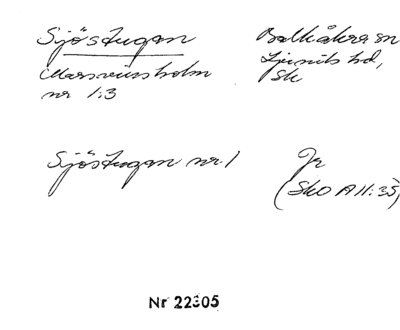 Sjöstugan
Marsvinsholm
nr 1:3
Balkåkra sn
Ljunits hd,
Sk
Sjöstugan nr 1
Jr
(SkO A II:35)
Nr 22305